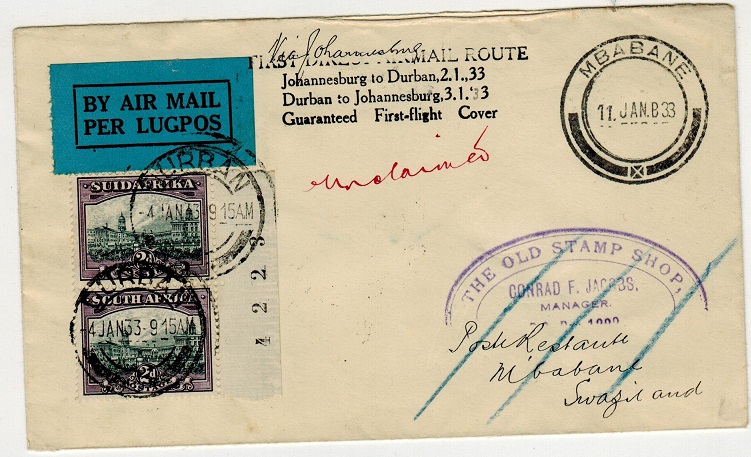 Via Johannesburg
FIRST DIRECT AIRMAIL ROUTE
Johannesburg to Durban,2.1.,33
Durban to Johannesburg,3.1.'33
Guaranteed First-flight Cover
BY AIR MAIL
PER LUGPOS
MBABANE
11. JAN.B33
unclaimed
DURBAN
-4 JAN33-9 15AM
SUIDAFRIKA
2D
4 2 2 3
DURBAN
-4 JAN33-9 15AM
SOUTH AFRICA
2D
POSTAGE
THE OLD STAMP SHOP,
CONRAD F. JACOBS.
MANAGER.
Poste Restante
Mbabane
Swaziland